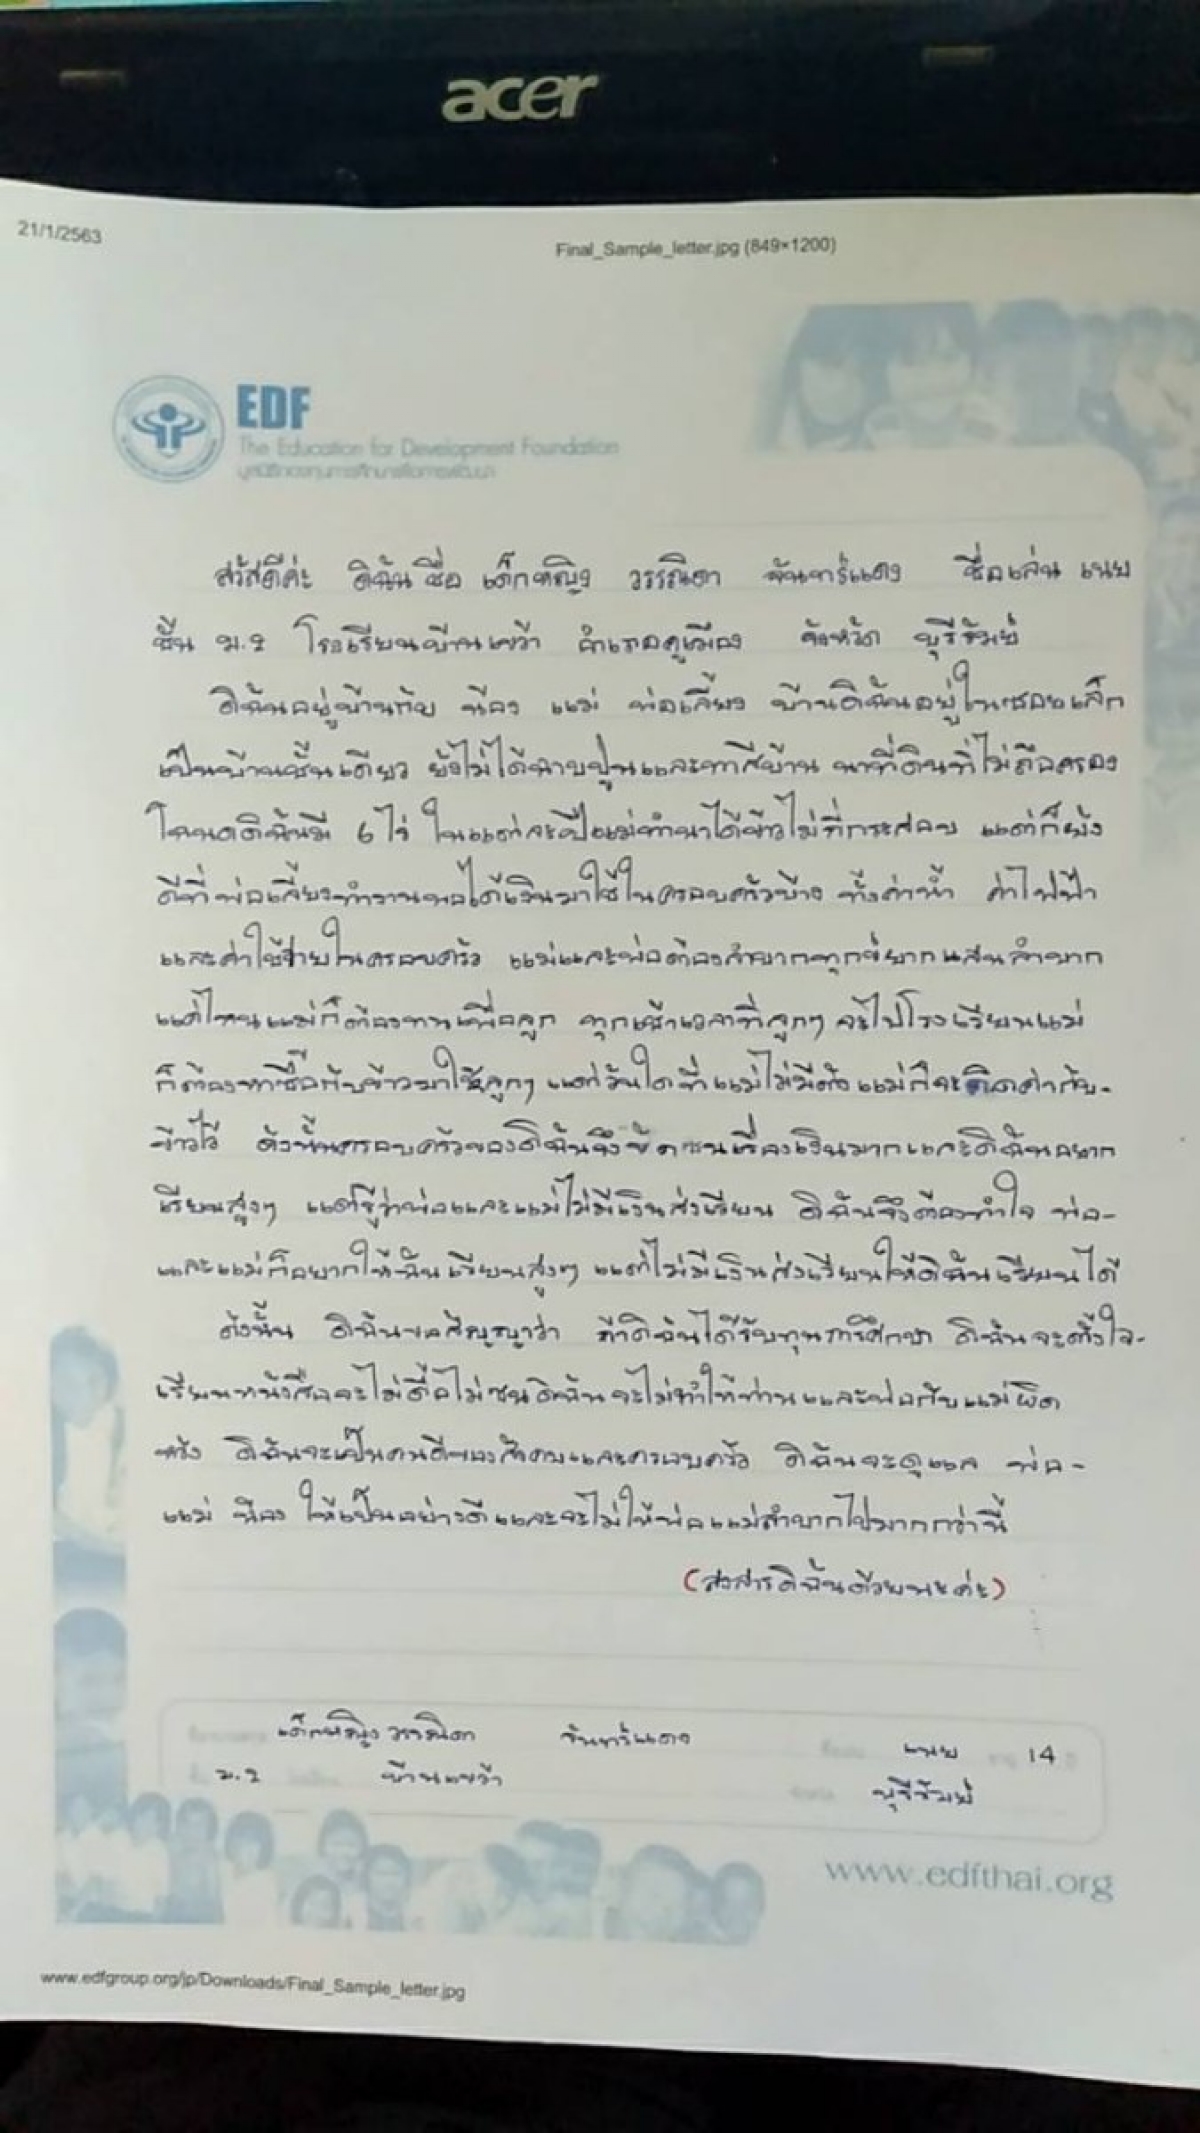 acer
21/1/2563
Final_Sample_letter.jpg (849×1200)
EDF
The Education for Development Foundation
มูลนิธิกองทุนการศึกษาเพื่อการพัฒนา
สวัสดีค่ะ ดิฉันชื่อ เด็กหญิง วรรณิดา จันทร์แดง ชื่อเล่น เนย
ชั้น ม.2 โรงเรียนบ้านแขว้า อำเภอคูเมือง จังหวัด บุรีรัมย์
ดิฉันอยู่บ้านกับ น้อง แม่ พ่อเลี้ยง บ้านดิฉันอยู่ในซอยเล็ก
เป็นบ้านชั้นเดียว ยังไม่ได้ฉาบปูนและทาสีบ้าน นาที่ดินที่ไม่ถือครอง
โฉนดดิฉันมี 6 ไร่ ในแต่ละปีแม่ทำนาได้ข้าวไม่กี่กระสอบ แต่ก็ยัง
ดีที่พ่อเลี้ยงทำงานพอได้เงินมาใช้ในครอบครัวบ้าง ทั้งค่าน้ำ ค่าไฟฟ้า
และค่าใช้จ่ายในครอบครัว แม่และพ่อต้องลำบากทุกข์ยากแสนลำบาก
แค่ไหนแม่ก็ต้องทนเพื่อลูก ทุกเช้าเวลาที่ลูกๆ จะไปโรงเรียนแม่
ก็ต้องหาซื้อกับข้าวมาให้ลูกๆ แต่วันใดที่แม่ไม่มีตัง แม่ก็จะติดค่ากับ-
ข้าวไว้ ดังนั้นครอบครัวของดิฉันจึงขัดสนเรื่องเงินมากและดิฉันอยาก
เรียนสูงๆ แต่รู้ว่าพ่อและแม่ไม่มีเงินส่งเรียน ดิฉันจึงต้องทำใจ พ่อ-
และแม่ก็อยากให้ฉันเรียนสูงๆ แต่ไม่มีเงินส่งเรียนให้ดิฉันเรียนได้
ดังนั้น ดิฉันขอสัญญาว่า ถ้าดิฉันได้รับทุนการศึกษา ดิฉันจะตั้งใจ-
เรียนหนังสือจะไม่ดื้อไม่ซนดิฉันจะไม่ทำให้ท่านและพ่อกับแม่ผิด
หวัง ดิฉันจะเป็นคนดีของสังคมและครอบครัว ดิฉันจะดูแล พ่อ-
แม่ น้อง ให้เป็นอย่างดีและจะไม่ให้พ่อแม่ลำบากไปมากกว่านี้
(สงสารดิฉันด้วยนะค่ะ)
เด็กหญิง วรรณิดา จันทร์แดง เนย 14
ม.2 บ้านแขว้า บุรีรัมย์
www.edfthai.org
www.edfgroup.org/jp/Downloads/Final_Sample_letter.jpg